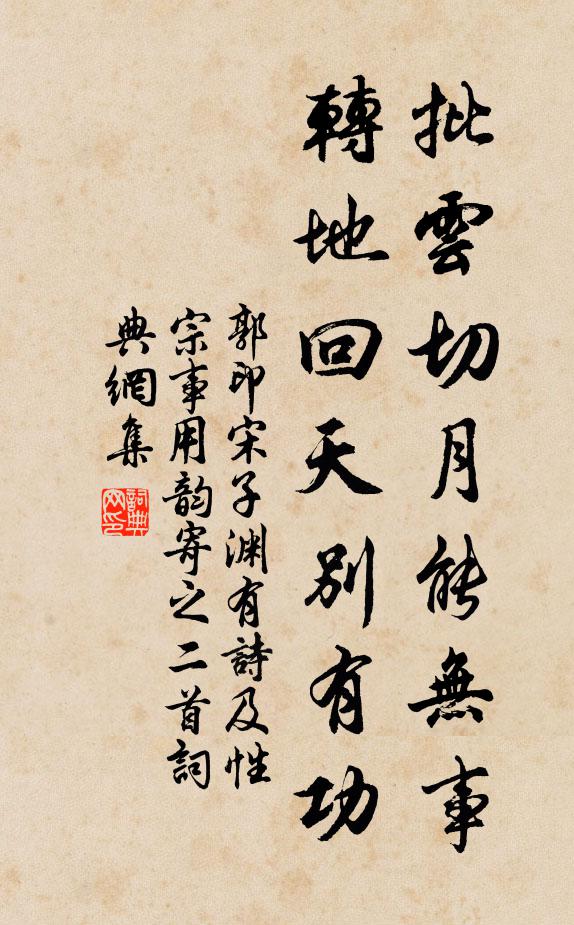 批雲切月能無事
轉地回天別有功
郭印宋子淵有詩及性
宗事用韵寄之二首詞
典網集
詞典網印